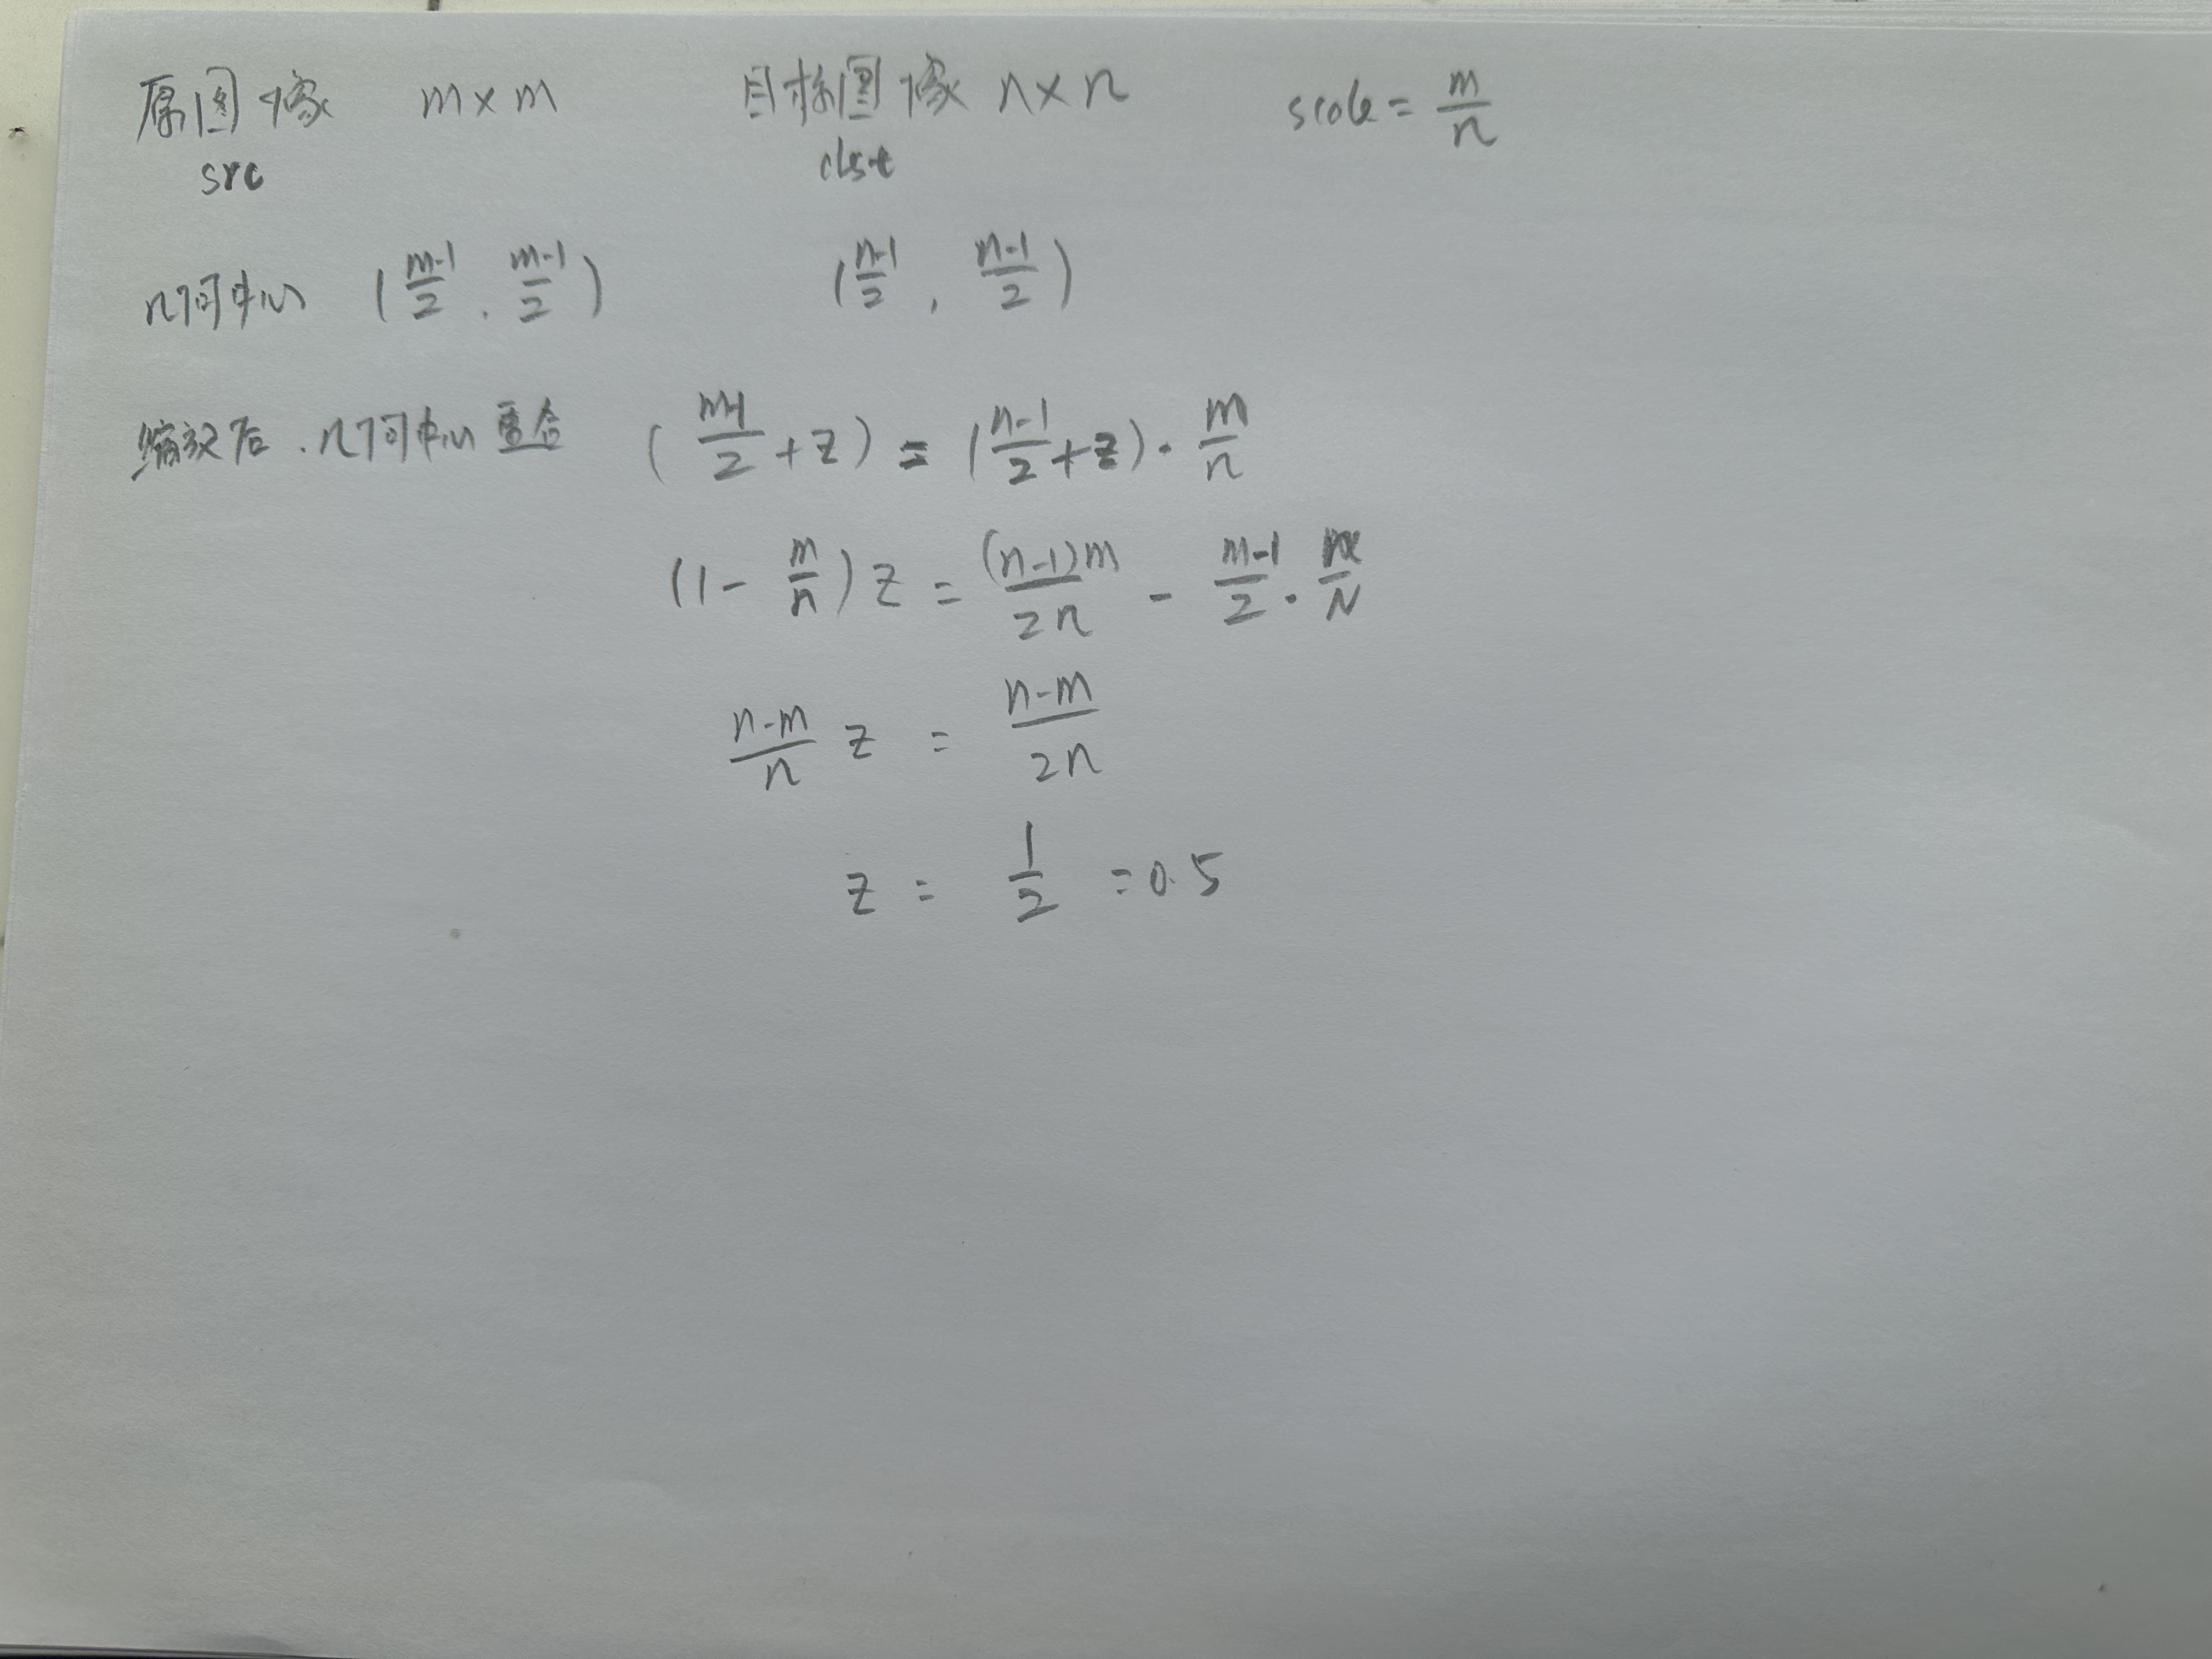 原图像 m×m 目标图像 n×n scale = m/n
src dst
几何中心 (m-1/2, m-1/2) (n-1/2, n-1/2)
缩放后,几何中心重合 (m-1/2 + z) = (n-1/2 + z)·m/n
(1 - m/n) z = (n-1)m/2n - m-1/2 ·
n-m/n z = n-m/2n
z = 1/2 = 0.5